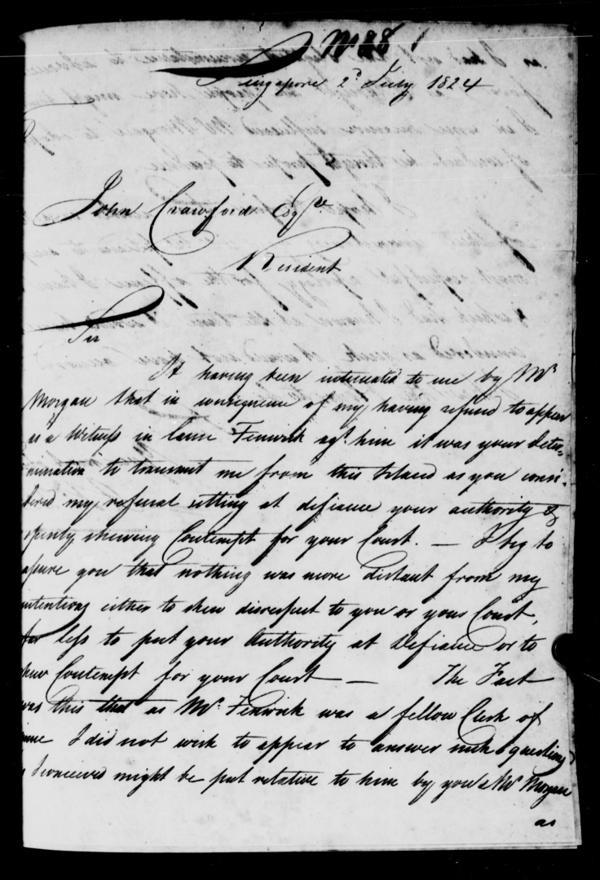 No 28
Singapore 2d July 1824
John Crawford Esqre
Resident
Sir
It having been intimated to me by Mr
Morgan that in consequence of my having refused to appear
as a Witness in Cause Fenwick agt. him it was your deter-
mination to transmit me from this Island as you consi-
dered my refusal setting at defiance your authority &
openly shewing Contempt for your Court. — I beg to
assure you that nothing was more distant from my
intentions either to shew disrespect to you or your Court,
far less to put your Authority at Defiance or to
shew Contempt for your Court — The Fact
was this that as Mr. Fenwick was a fellow Clerk of
mine I did not wish to appear to answer such questions
I conceived might be put relative to him by you & Mr Morgan
as